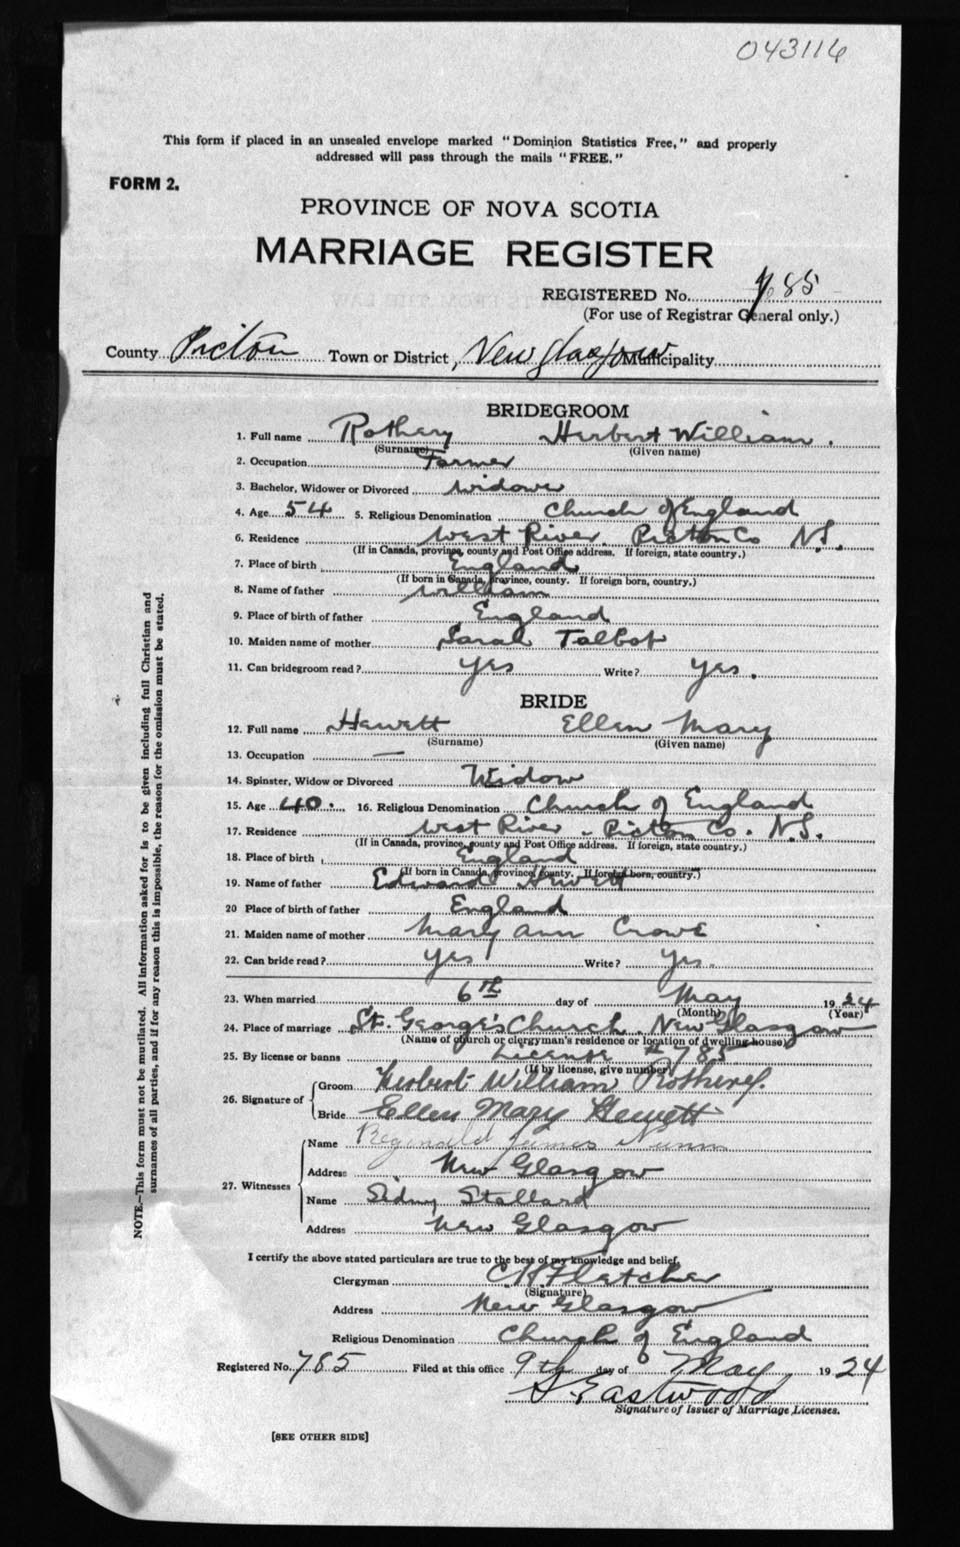 043116
This form if placed in an unsealed envelope marked "Dominion Statistics Free," and properly
addressed will pass through the mails "FREE."
FORM 2.
PROVINCE OF NOVA SCOTIA
MARRIAGE REGISTER
REGISTERED No. 785
(For use of Registrar General only.)
County Pictou Town or District, New Glasgow Municipality
BRIDEGROOM
1. Full name Rothery Herbert William.
(Surname) (Given name)
2. Occupation Farmer
3. Bachelor, Widower or Divorced Widower
4. Age 54 5. Religious Denomination Church of England
6. Residence West River Pictou Co N.S.
(If in Canada, province, county and Post Office address. If foreign, state country.)
7. Place of birth England
(If born in Canada, province, county. If foreign born, country.)
8. Name of father William
9. Place of birth of father England
10. Maiden name of mother Sarah Talbot
11. Can bridegroom read? yes Write? yes.
BRIDE
12. Full name Hewett Ellen Mary
(Surname) (Given name)
13. Occupation —
14. Spinster, Widow or Divorced Widow
15. Age 40. 16. Religious Denomination Church of England
17. Residence West River - Pictou Co. N.S.
(If in Canada, province, county and Post Office address. If foreign, state country.)
18. Place of birth England
(If born in Canada, province, county. If foreign born, country.)
19. Name of father Edward Hewett
20 Place of birth of father England
21. Maiden name of mother Mary Ann Crowe
22. Can bride read? yes Write? yes.
23. When married 6th day of May 1924
(Month) (Year)
24. Place of marriage St. George's Church. New Glasgow
(Name of church or clergyman's residence or location of dwelling house)
25. By license or banns License # 785
(If by license, give number)
26. Signature of Groom Herbert William Rothery.
Bride Ellen Mary Hewett
27. Witnesses Name Reginald James Nunn
Address New Glasgow
Name Sidny Stallard
Address New Glasgow
I certify the above stated particulars are true to the best of my knowledge and belief.
Clergyman C K Fletcher
(Signature)
Address New Glasgow
Religious Denomination Church of England
Registered No. 785 Filed at this office 9th day of May 1924
Eastwood
Signature of Issuer of Marriage Licenses.
[SEE OTHER SIDE]
NOTE.—This form must not be mutilated. All information asked for is to be given including full Christian and
surnames of all parties, and if for any reason this is impossible, the reason for the omission must be stated.